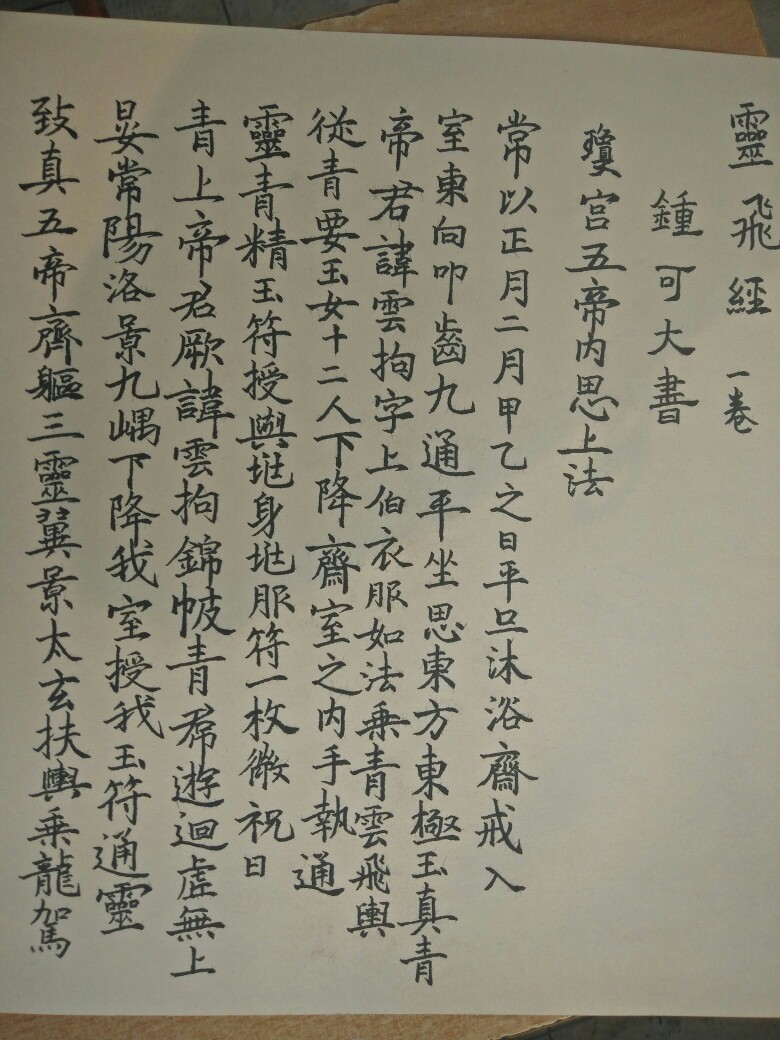 靈飛經一卷
鍾可大書
瓊宮五帝內思上法
常以正月二月甲乙之日平旦沐浴齋戒入
室東向叩齒九通平坐思東方東極玉真青
帝君諱雲拘字上伯衣服如法乘青雲飛輿
從青要玉女十二人下降齋室之內手執通
靈青精玉符授與兆身兆服符一枚微祝曰
青上帝君厥諱雲拘錦帔青帬遊迴虛無上
晏常陽洛景九嵎下降我室授我玉符通靈
致真五帝齊軀三靈翼景太玄扶輿乘龍駕